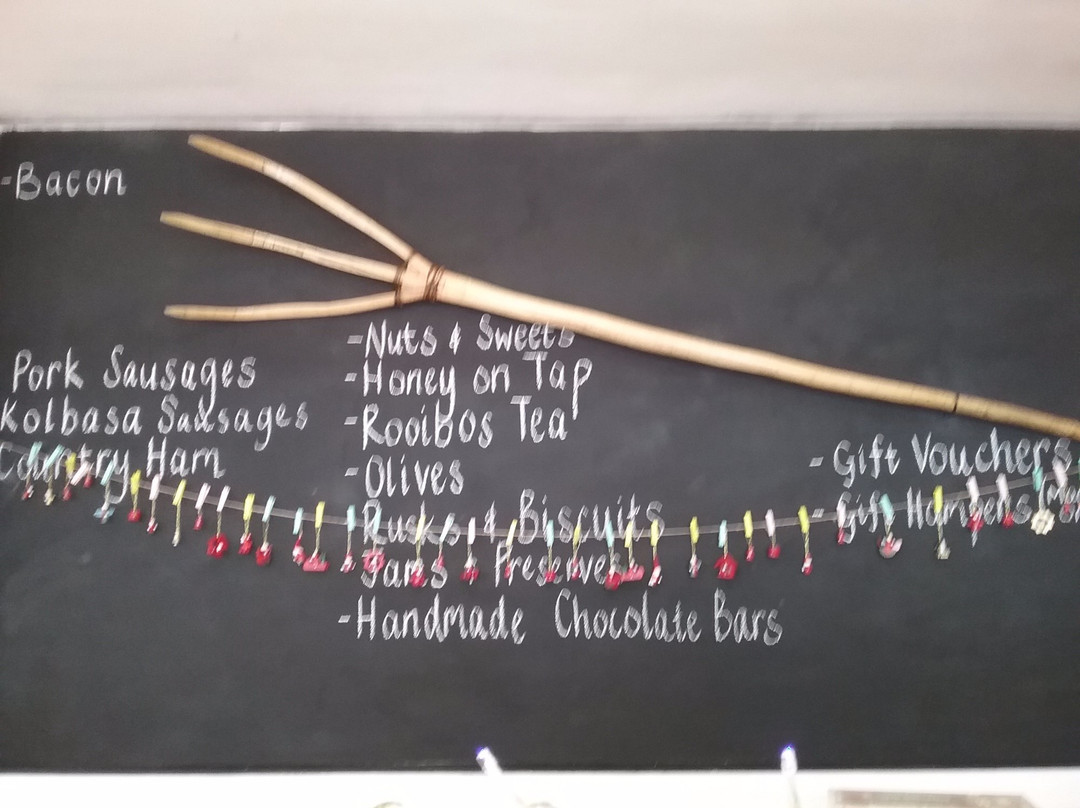 -Bacon
Pork Sausages
Kolbasa Sausages
Country Ham
-Nuts & Sweets
-Honey on Tap
-Rooibos Tea
-Olives
-Rusks & Biscuits
Jams Preserves
-Handmade Chocolate Bars
- Gift Vouchers
- Gift Hampers